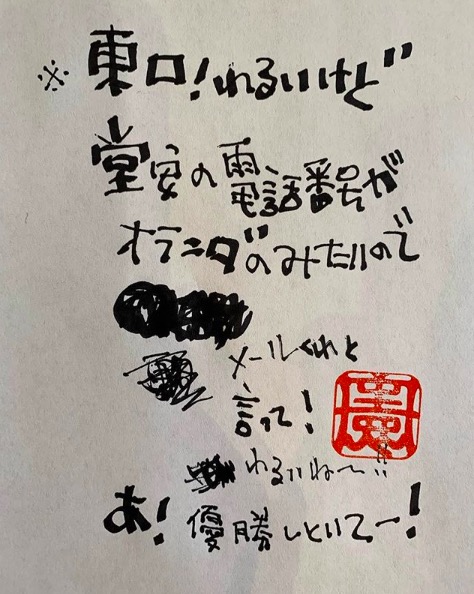 ※ 東口！わるいけど
堂安の電話番号が
オランダのみたいので
メールくれと
言って！
わるいね〜!!
あ！優勝しといてー！